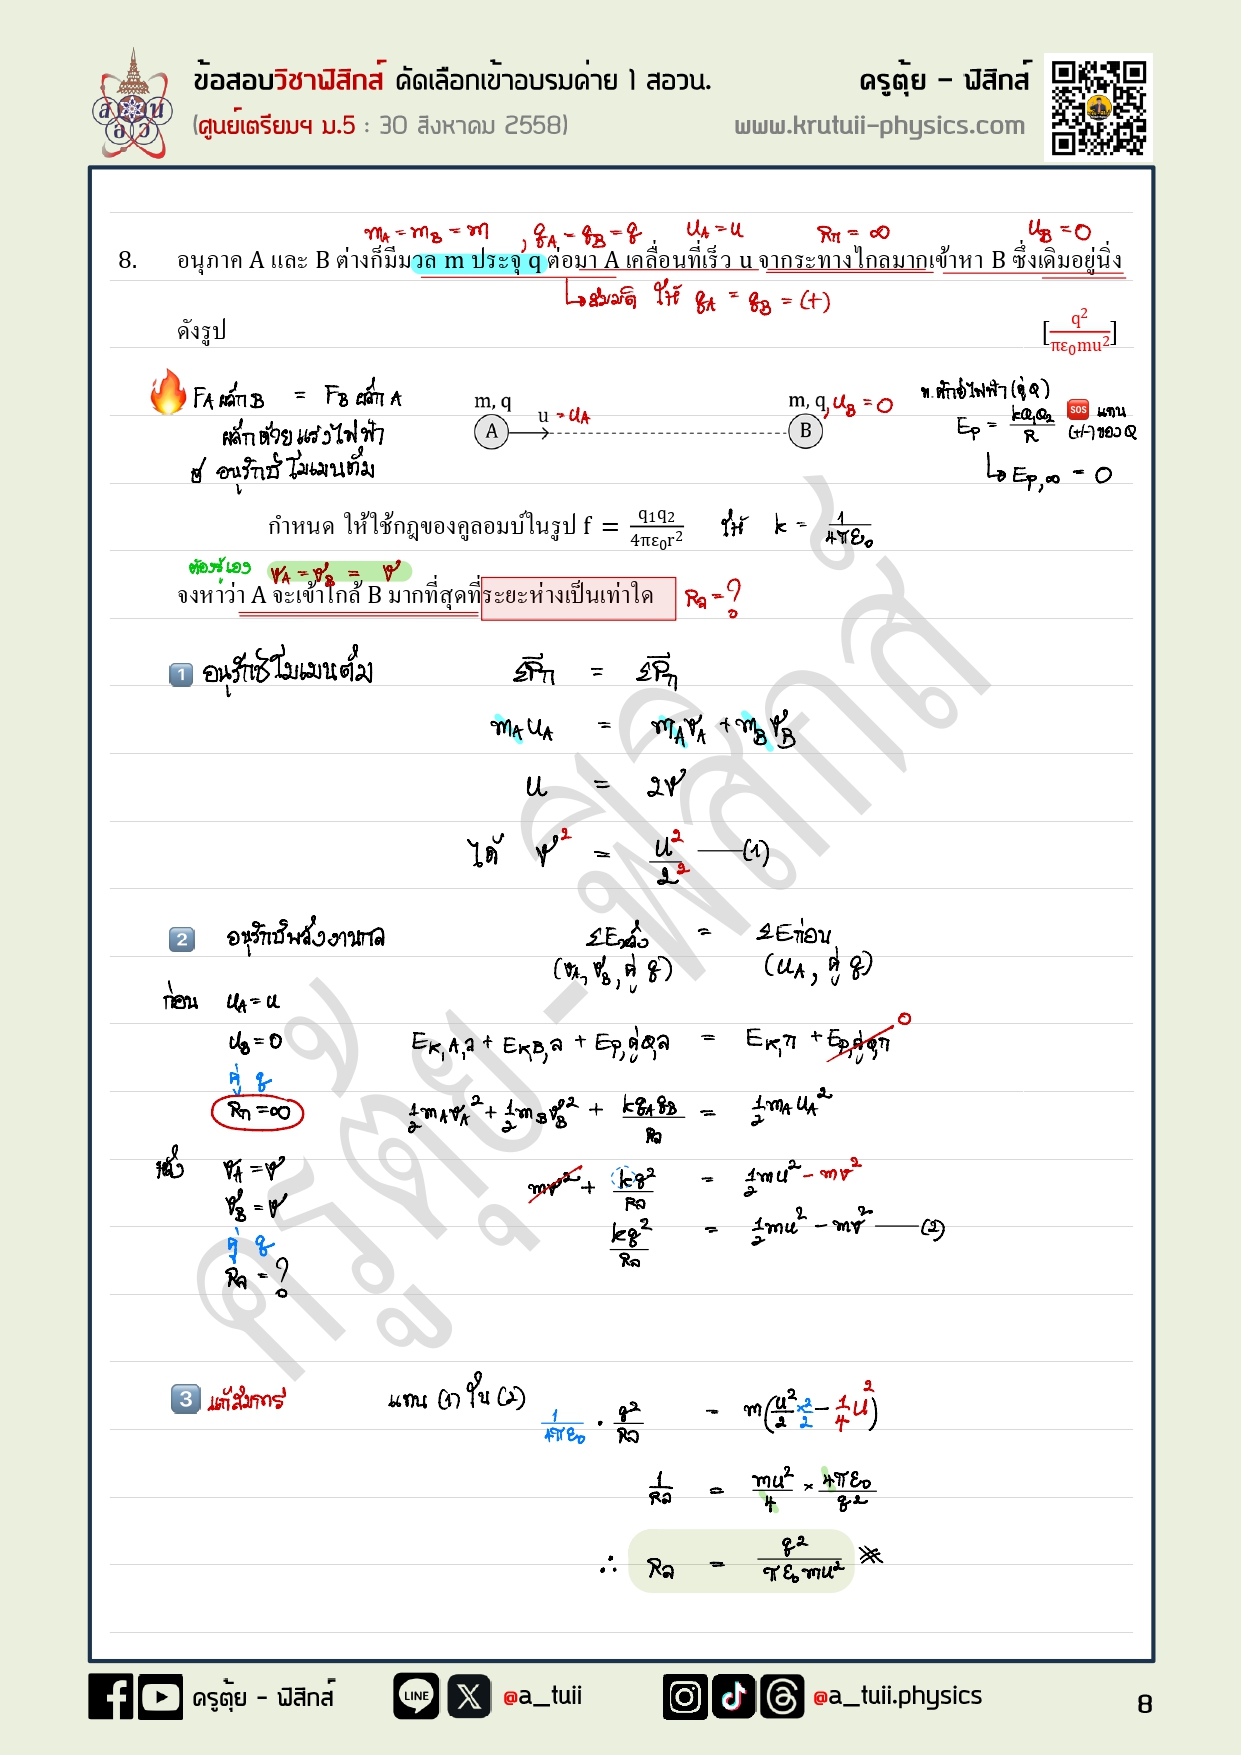 ข้อสอบวิชาฟิสิกส์ คัดเลือกเข้าอบรมค่าย 1 สอวน.
ครูตุ้ย – ฟิสิกส์
(ศูนย์เตรียมฯ ม.5 : 30 สิงหาคม 2558)
www.krutuii-physics.com
m_A = m_B = m , q_A = q_B = q u_A = u R_ก = ∞ u_B = 0
8. อนุภาค A และ B ต่างก็มีมวล m ประจุ q ต่อมา A เคลื่อนที่เร็ว u จากระทางไกลมากเข้าหา B ซึ่งเดิมอยู่นิ่ง
↳ สมมติ ให้ q_A = q_B = (+)
ดังรูป [q²/πε₀mu²]
F_A ผลัก B = F_B ผลัก A
ผลักด้วยแรงไฟฟ้า
อนุรักษ์โมเมนตัม
m, q
A
u = u_A
m, q, u_B = 0
B
พ.ศักย์ไฟฟ้า (คู่ Q)
E_p = kQ₁Q₂/R
SOS แทน
(+/-) ของ Q
↳ E_p,∞ = 0
กำหนด ให้ใช้กฎของคูลอมบ์ในรูป f = q₁q₂/4πε₀r² ให้ k = 1/4πε₀
ต้องรู้เอง v_A = v_B = v
จงหาว่า A จะเข้าใกล้ B มากที่สุดที่ระยะห่างเป็นเท่าใด R_ล = ?
1 อนุรักษ์โมเมนตัม ΣP_ก = ΣP_ห
m_A u_A = m_A v_A + m_B v_B
u = 2v
ได้ v² = u²/2² —(1)
2 อนุรักษ์พลังงานกล ΣEหลัง = ΣEก่อน
(v_A, v_B, คู่ q) (u_A, คู่ q)
ก่อน u_A = u
u_B = 0
คู่ q
R_ก = ∞
E_K,A,ล + E_K,B,ล + E_P,คู่Q,ล = E_K,ก + E_P,คู่Q,ก 0
½m_A v_A² + ½m_B v_B² + kq_A q_B/R_ล = ½m_A u_A²
หลัง v_A = v
v_B = v
คู่ q
R_ล = ?
mv² + kq²/R_ล = ½mu² - mv²
kq²/R_ล = ½mu² - mv² —(2)
3 แก้สมการ แทน (1) ใน (2)
1/4πε₀ · q²/R_ล = m(u²/2 ×2/2 - 1/4 u²)
1/R_ล = mu²/4 × 4πε₀/q²
∴ R_ล = q²/πε₀mu²
ครูตุ้ย – ฟิสิกส์
LINE
@a_tuii
@a_tuii.physics
8
ครูตุ้ย - ฟิสิกส์